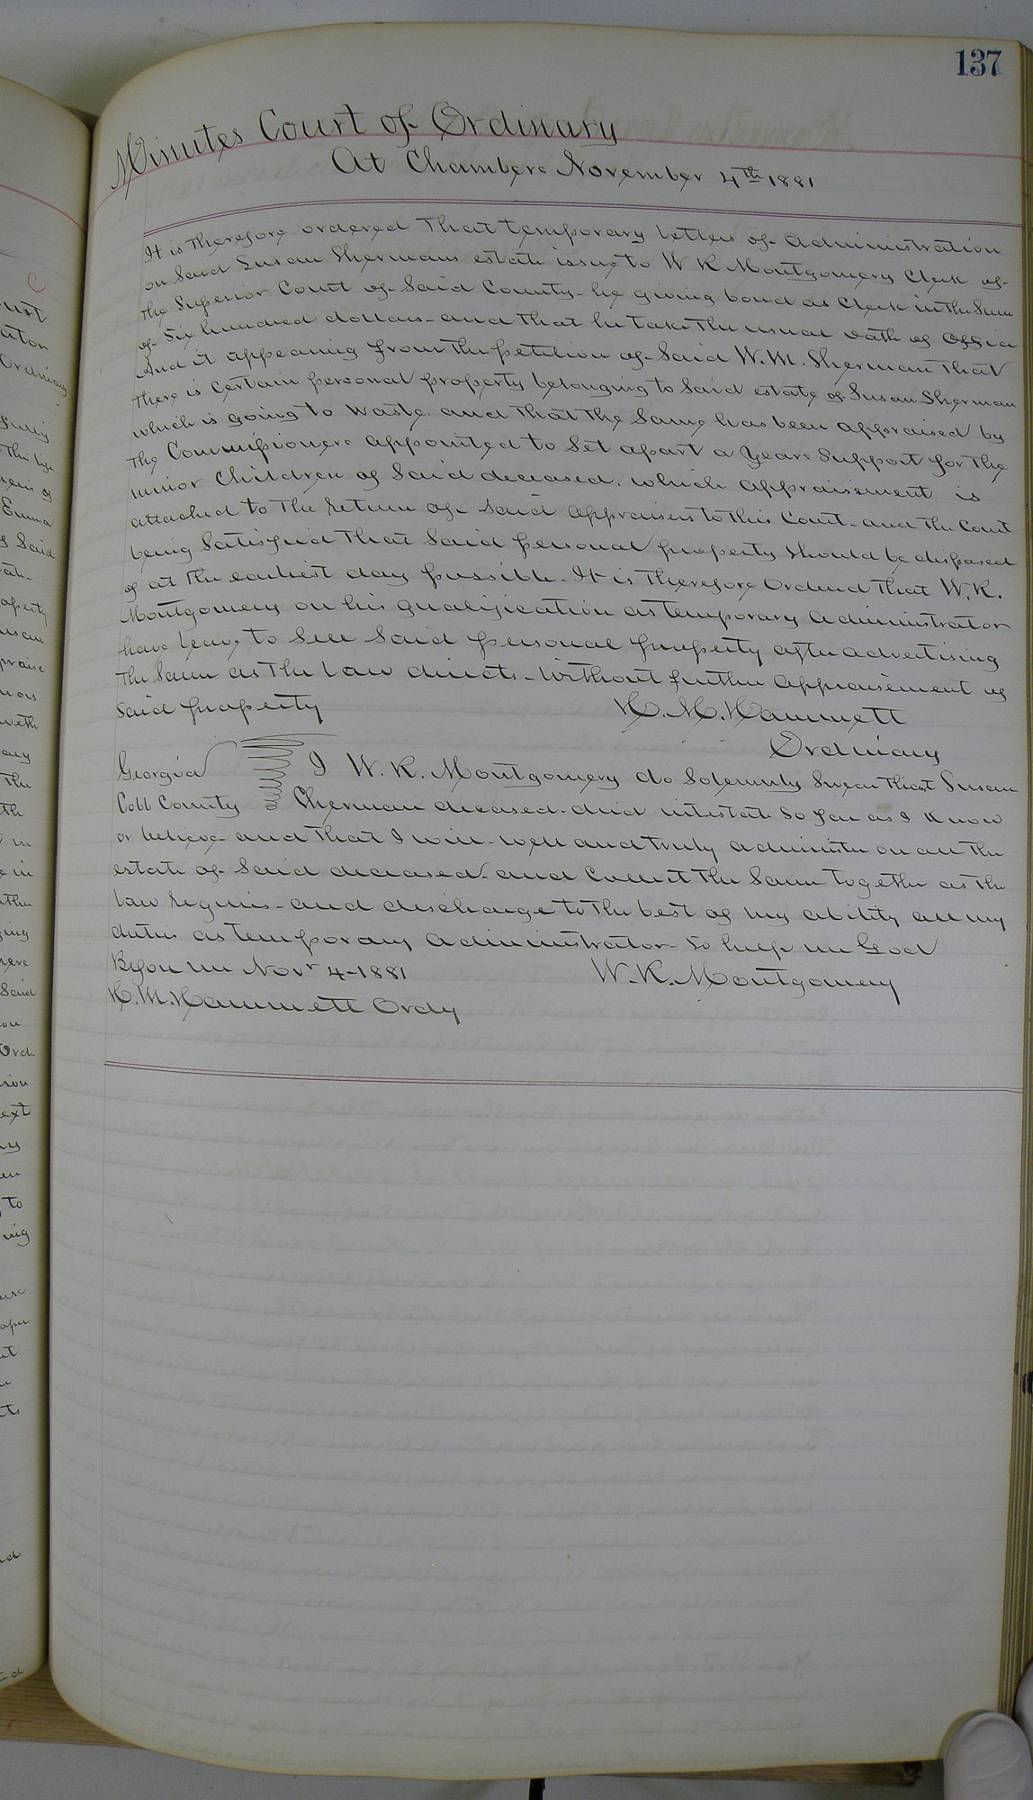 137
Minutes Court of Ordinary
At Chambers November 4th 1881
It is Therefore ordered That temporary letters of Administration
on Said Susan Shermans estate issue to W R Montgomery Clerk of
the Superior Court of Said County - he giving bond as Clerk in the Sum
of Six hundred dollars - and that he take the usual oath of office
And it appearing from the petition of Said W. M. Sherman That
There is Certain personal property belonging to Said estate of Susan Sherman
which is going to waste and that the Same has been appraised by
the Commissioners appointed to Set apart a Years Support for the
minor Children of Said deceased. which appraisement is
attached to The return of Said appraisers to this Court - and the Court
being Satisfied That Said personal property Should be disposed
of at the earliest day possible - It is Therefore Ordered That W. R.
Montgomery on his qualification as temporary administrator
have leave to Sell Said personal property after advertising
the Same as The law directs - without further appraisement of
Said property H. M. Hammett
Ordinary
Georgia I W. R. Montgomery do Solemnly Swear that Susan
Cobb County Sherman deceased - died intestate So far as I Know
or believe - and That I will - well and truly administer on all the
estate of Said deceased - and Collect the Same together as the
law requires - and discharge to the best of my ability all my
duties as temporary administrator - So help me God
Before me Novr 4 - 1881 W. R. Montgomery
H. M. Hammett Ordy